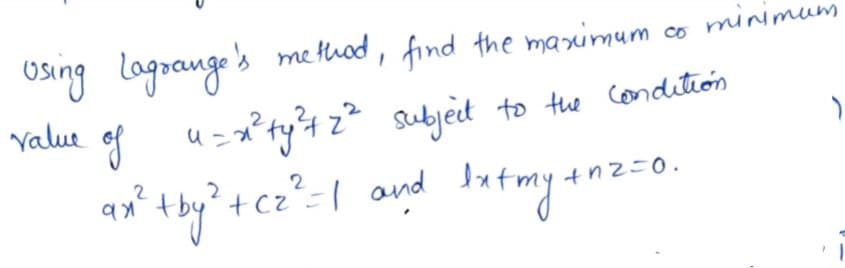 Using Lagrange's method, find the maximum or minimum
value of u = x² + y² + z² subject to the condition
ax² + by² + cz² = 1 and lx + my + nz = 0.